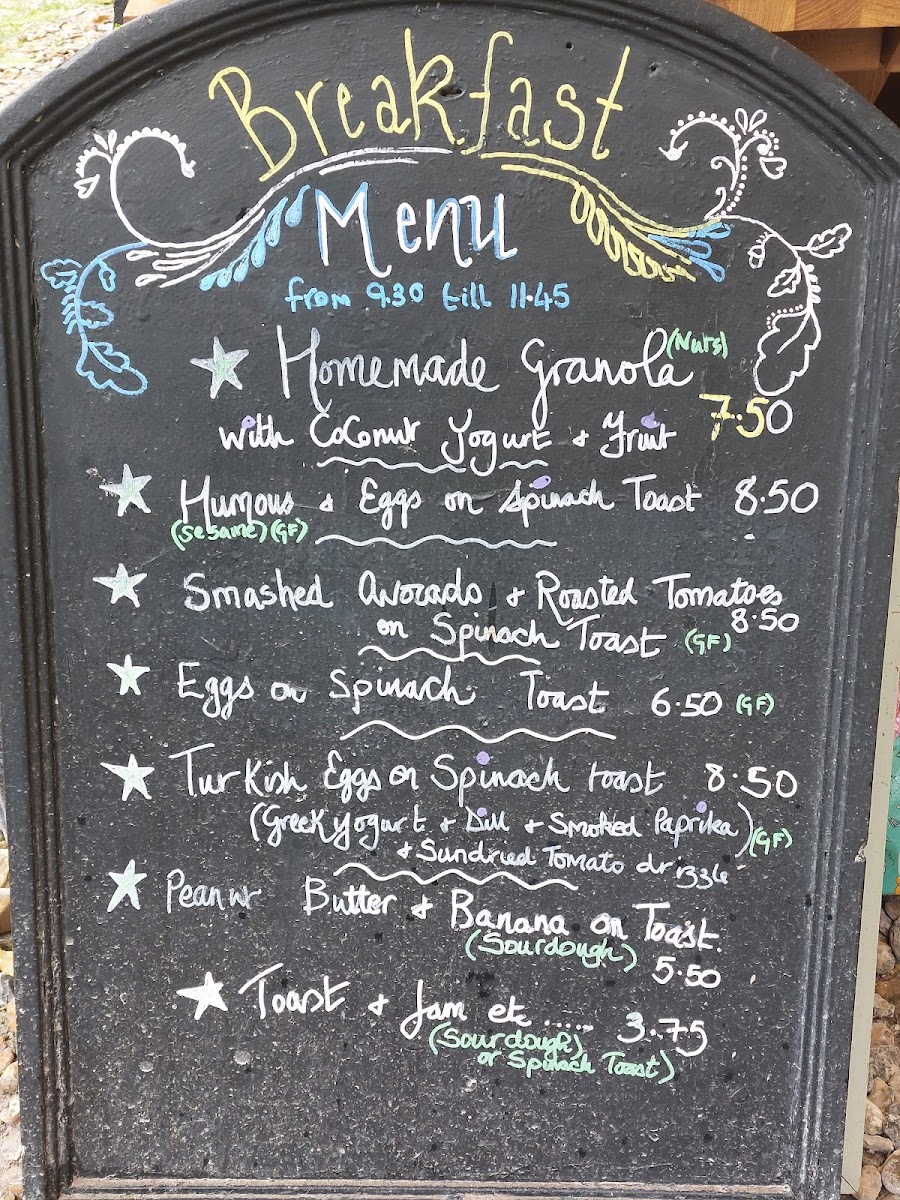 Breakfast
Menu
from 9.30 till 11.45
Homemade Granola (Nuts)
with Coconut Yogurt & Fruit 7.50
Humous & Eggs on Spinach Toast 8.50
(Sesame) (GF)
Smashed Avocado & Roasted Tomatoes
on Spinach Toast (GF) 8.50
Eggs on Spinach Toast 6.50 (GF)
Turkish Eggs on Spinach toast 8.50
(Greek yogurt & Dill & Smoked Paprika) (GF)
& Sundried Tomato drizzle
Peanut Butter & Banana on Toast.
(Sourdough) 5.50
Toast & Jam etc ..... 3.75
(Sourdough)
or Spinach Toast)